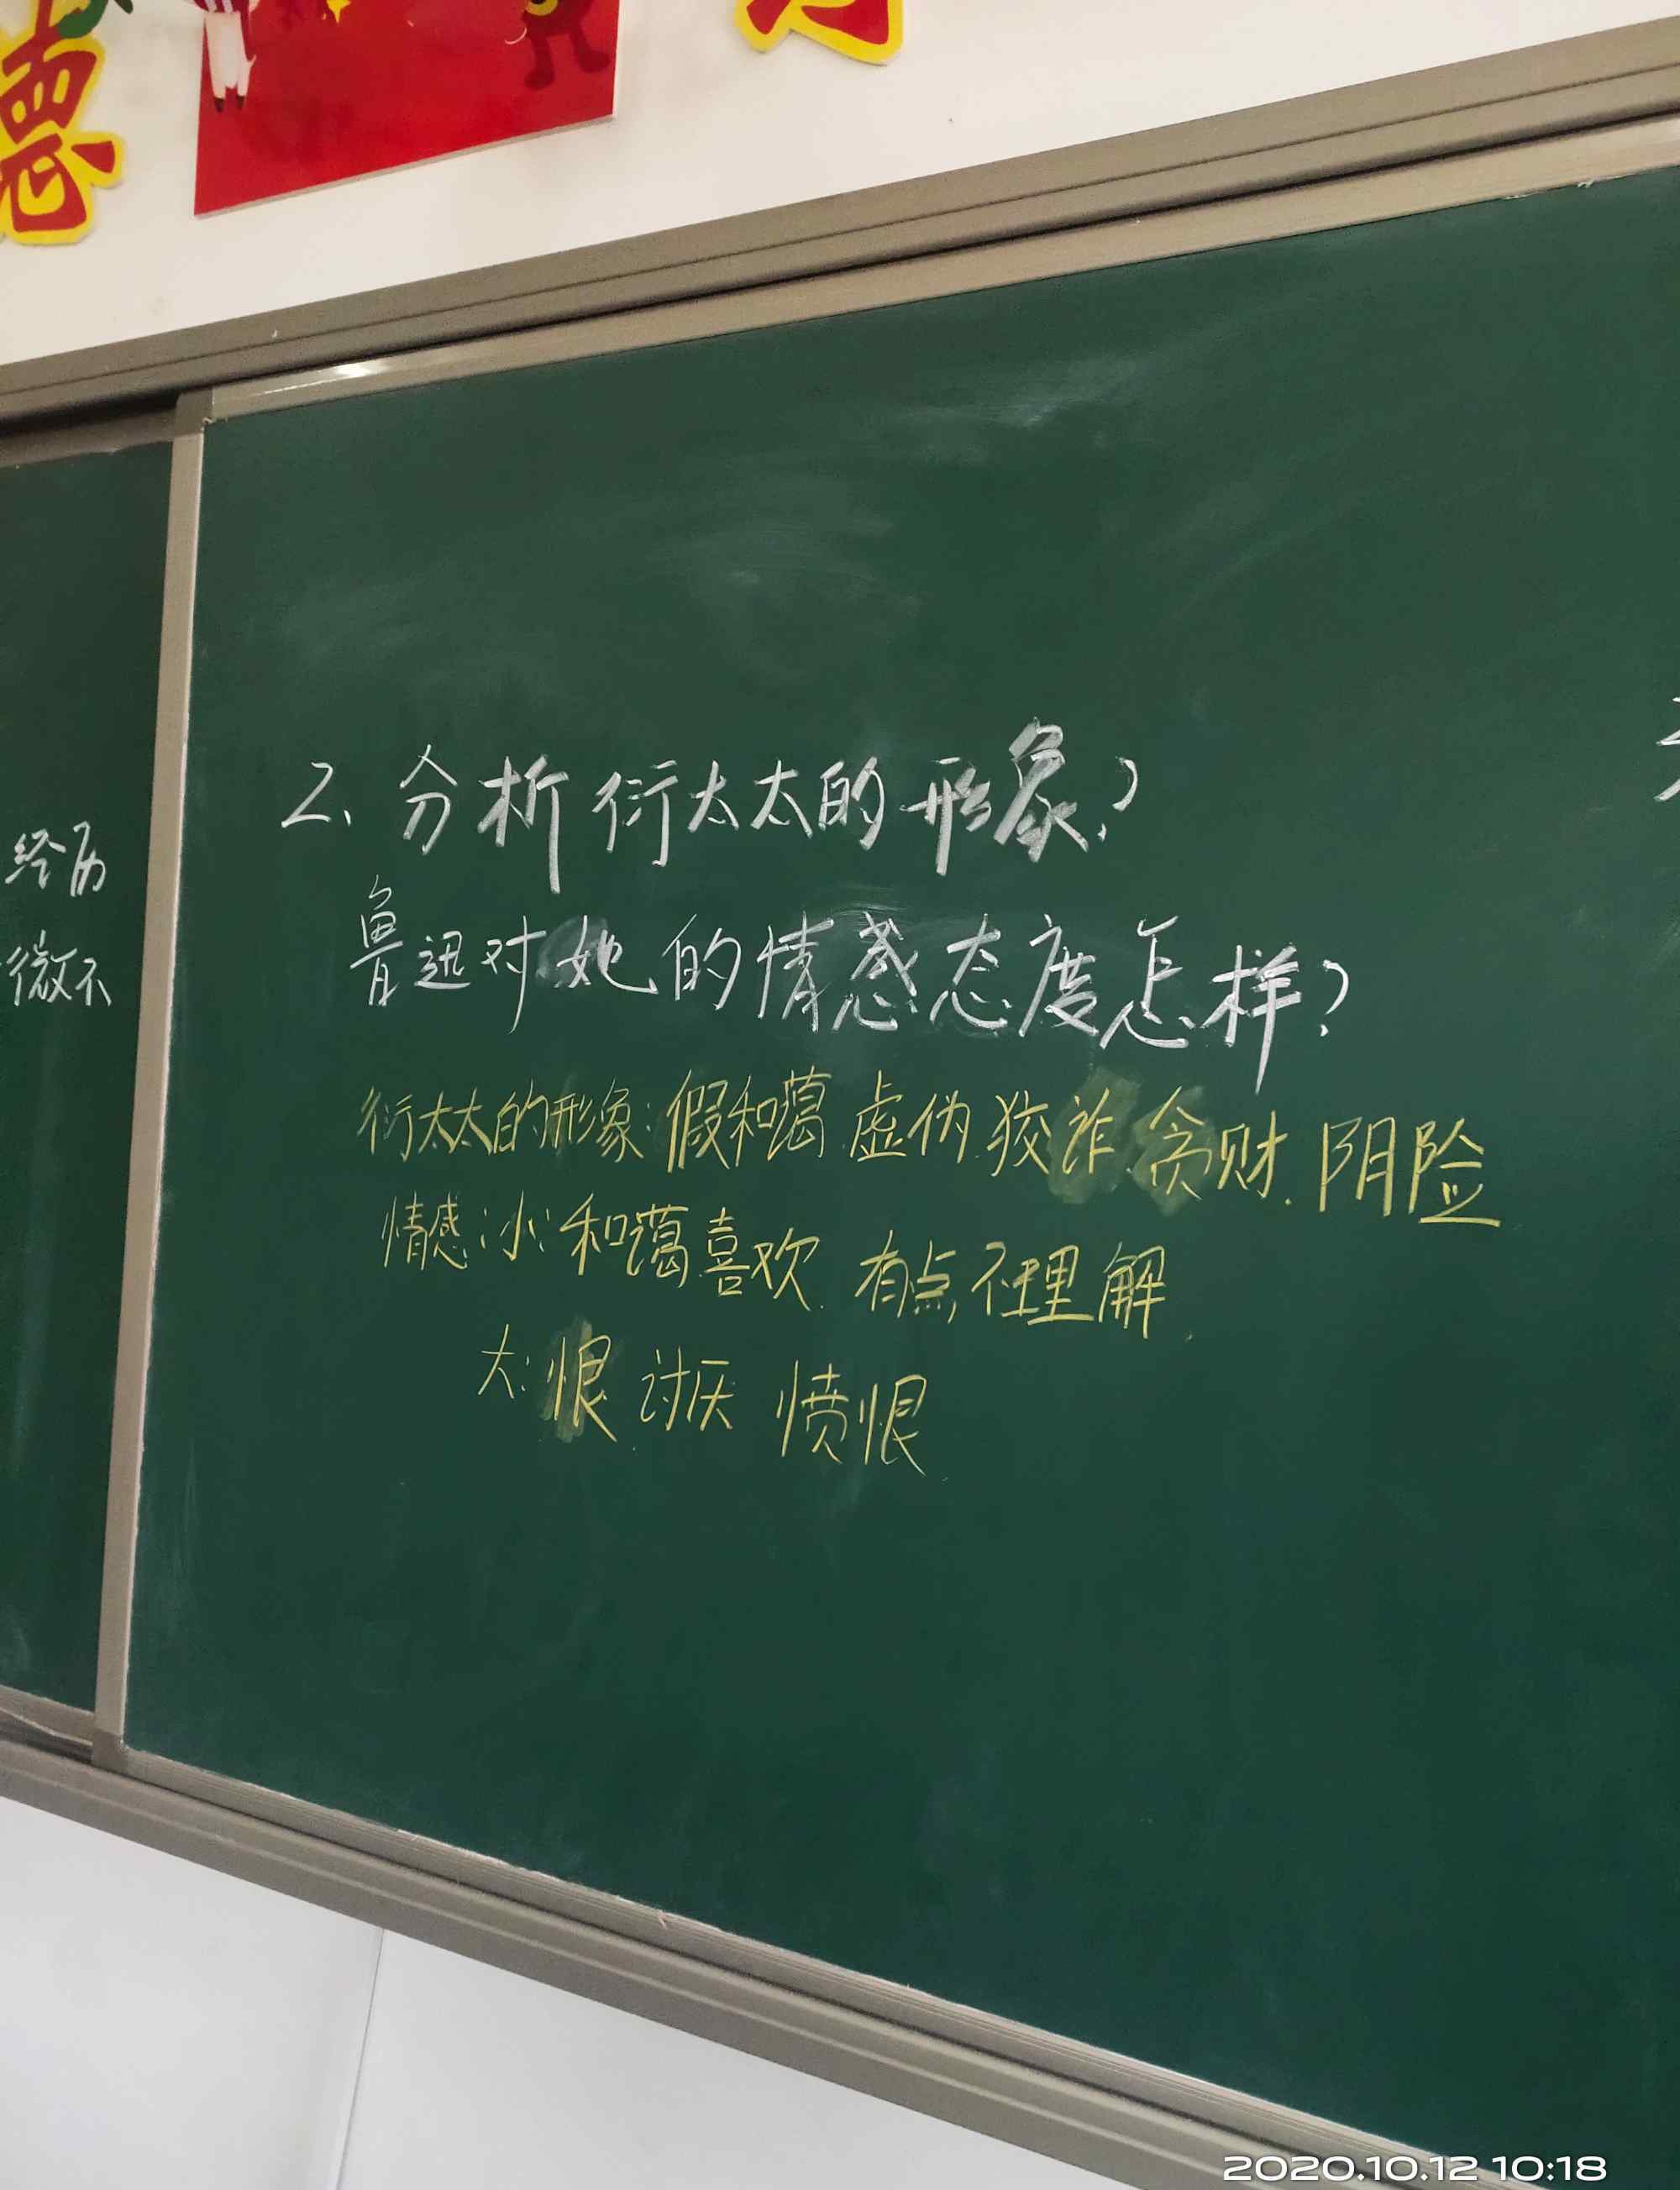 德
经历
微不
2、分析衍太太的形象?
鲁迅对她的情感态度怎样?
衍太太的形象:假和蔼 虚伪 狡诈 贪财. 阴险
情感:小:和蔼 喜欢. 有点不理解.
大:恨. 讨厌 愤恨.
2020.10.12 10:18